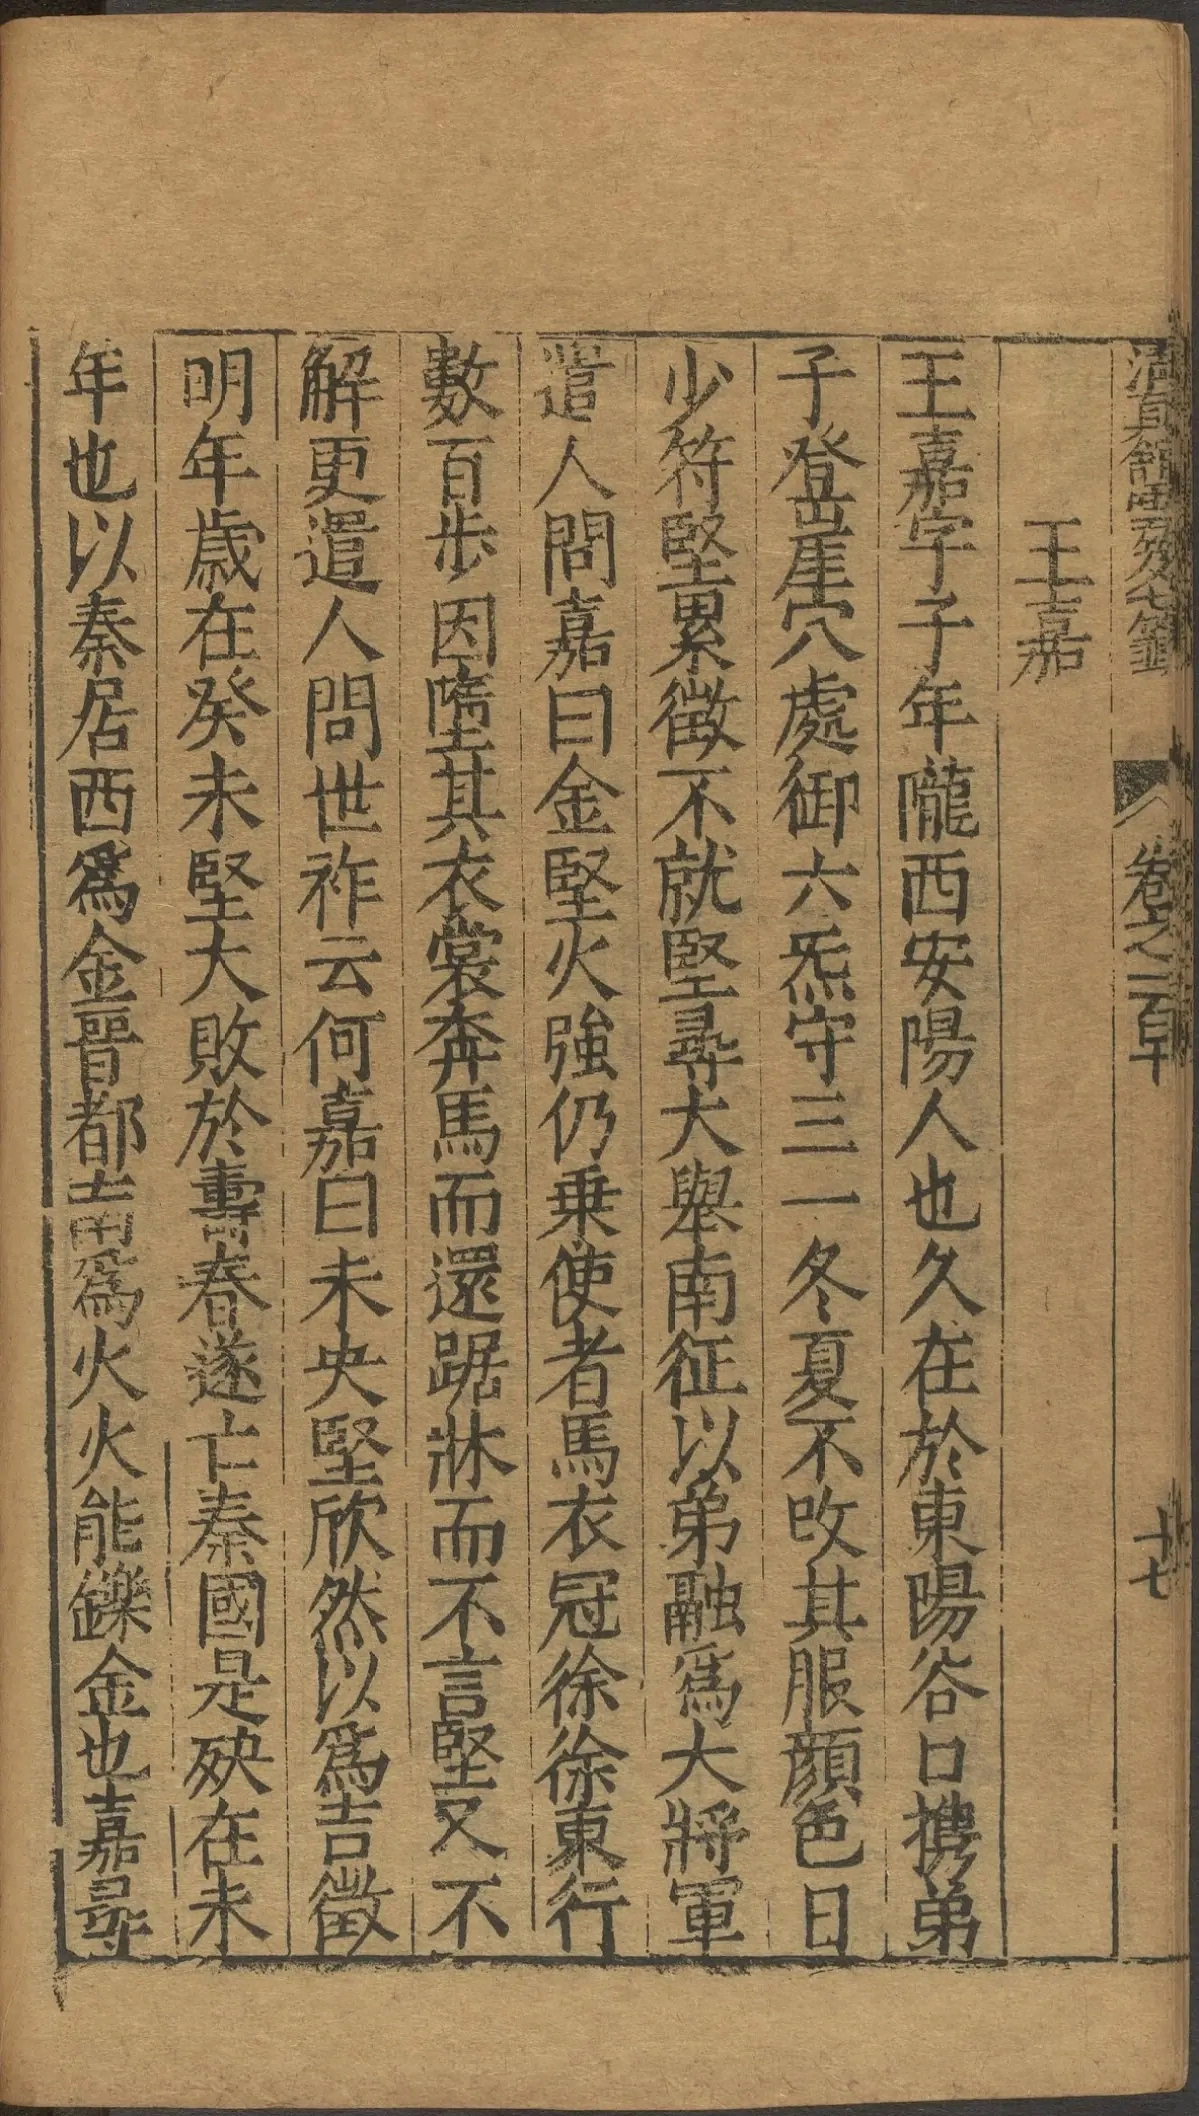 清真館雲笈七籤 卷之一百十 十七
王嘉
王嘉字子年隴西安陽人也久在於東陽谷口攜弟
子登崖穴處御六炁守三一冬夏不改其服顔色日
少符堅累徵不就堅尋大舉南征以弟融爲大將軍
遣人問嘉曰金堅火強仍乗使者馬衣冠徐徐東行
數百步因墮其衣裳奔馬而還踞牀而不言堅又不
解更遣人問世祚云何嘉曰未央堅欣然以爲吉徵
明年歲在癸未堅大敗於壽春遂亡秦國是殃在未
年也以秦居西爲金晉都南爲火火能鑠金也嘉尋